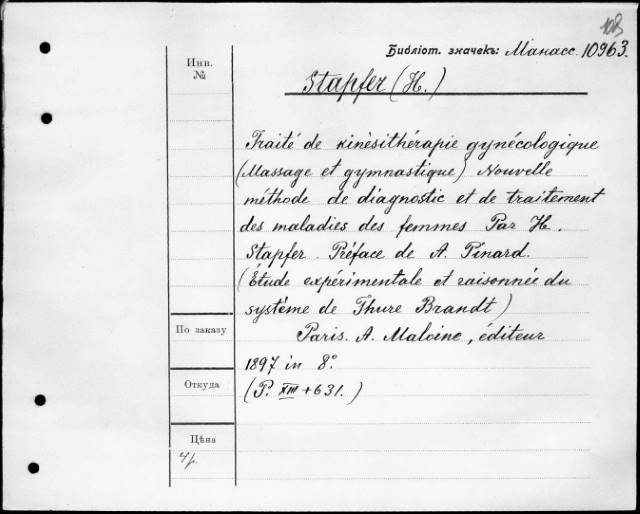 108
Библіот. значекъ: Манасс. 10963.
Инв.
№
Stapfer (H.)
Traité de kinèsithérapie gynécologique
(Massage et gymnastique) Nouvelle
méthode de diagnostic et de traitement
des maladies des femmes Par H.
Stapfer. Préface de A. Pinard.
(Étude expérimentale et raisonnée du
système de Thure Brandt)
По заказу
Paris. A. Maloine, éditeur
1897 in 8°
Откуда
(P. XIII + 631.)
Цѣна